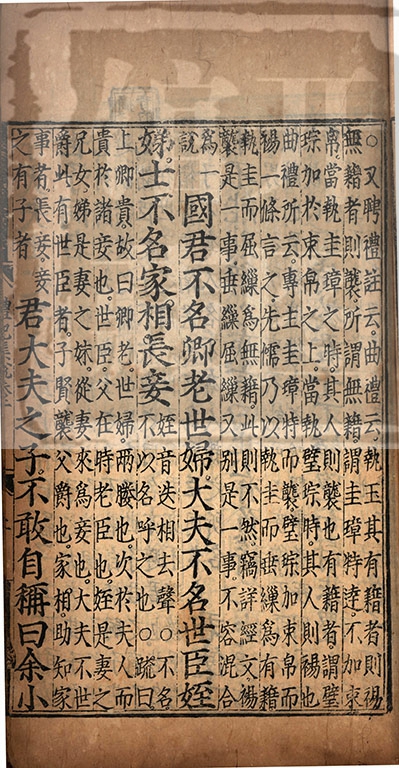 ○又聘禮註云曲禮云執玉其有藉者則裼
無藉者則襲所謂無藉謂圭璋特達不加束
帛當執圭璋之時其人則襲也有藉者謂璧
琮加於束帛之上當執璧琮時其人則裼也
曲禮所云專主圭璋特而襲璧琮加束帛而
裼一條言之先儒乃以執圭而垂繅為有藉
執圭而屈繅為無藉此則不然竊詳經文裼
襲是一事垂繅屈繅又别是一事不容混合
為一
說
國君不名卿老世婦大夫不名世臣姪
娣士不名家相長妾
姪音迭相去聲○不名
不以名呼之也○疏曰
上卿貴故曰卿老世婦兩媵也次於夫人而
貴於諸妾也世臣父在時老臣也姪是妻之
兄女娣是妻之妹從妻來為妾也大夫不世
爵此有世臣者子賢襲父爵也家相助知家
事者長妾妾
之有子者
君大夫之子不敢自稱曰余小